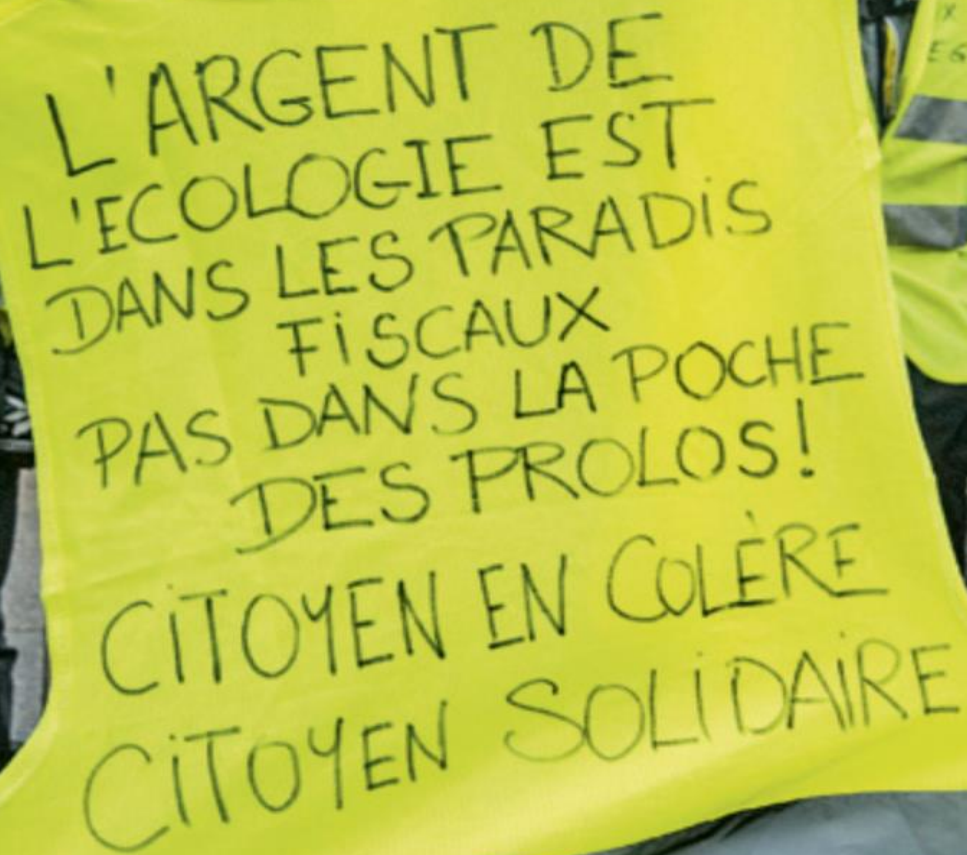 L'ARGENT DE
L'ECOLOGIE EST
DANS LES PARADiS
FiSCAUX
PAS DANS LA POCHE
DES PROLOS!
CiTOYEN EN COLÈRE
CiTOYEN SOLiDAiRE